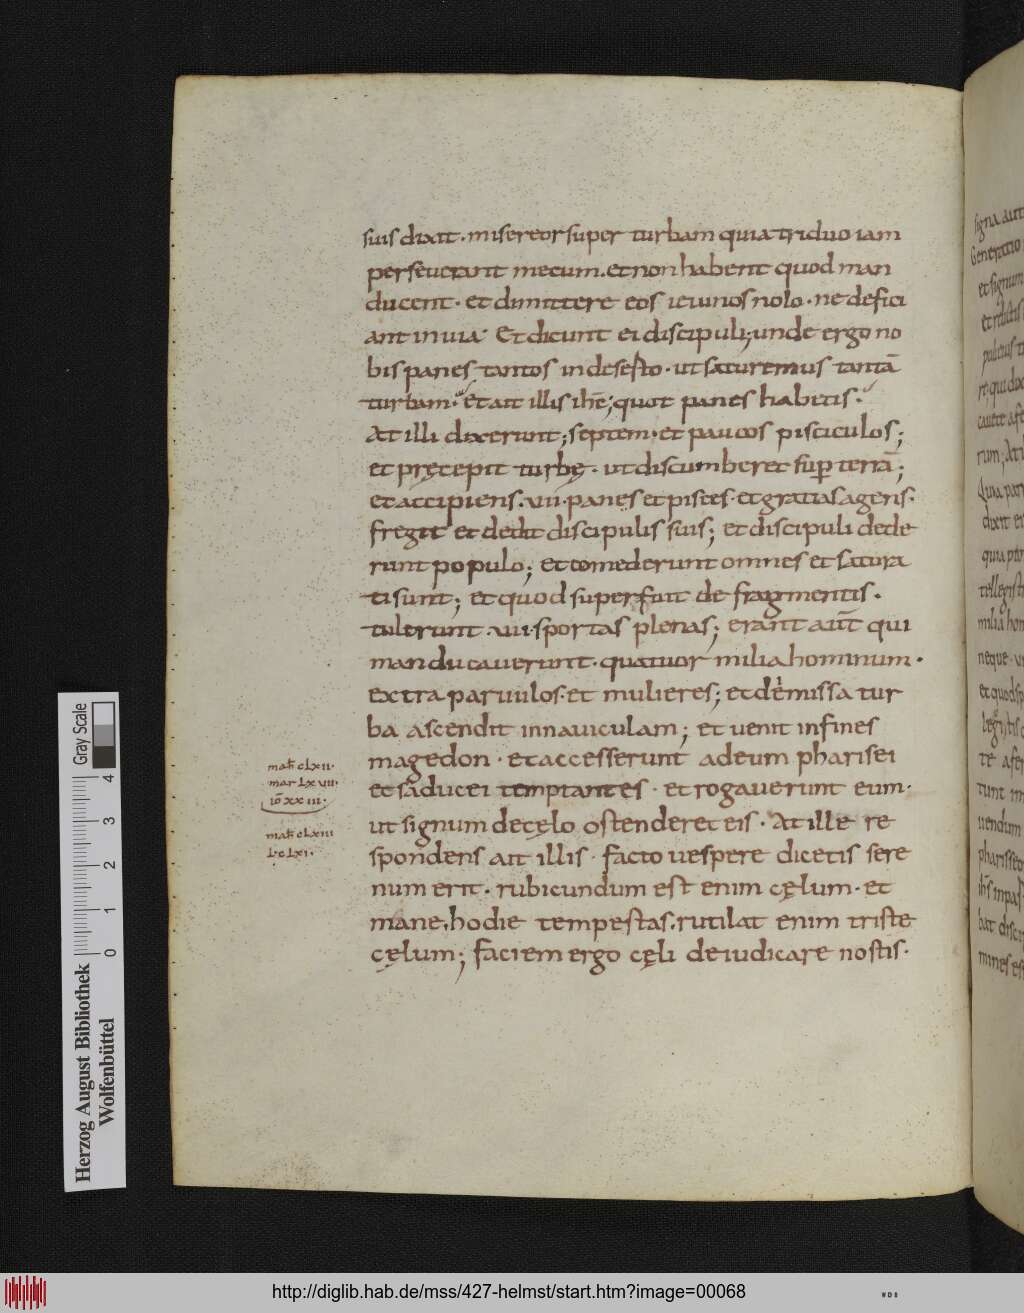 suis dixit · misereor super turbam quia triduo iam
perseverant mecum · et non habent quod man
ducent · et dimittere eos ieiunos nolo · ne defici
ant in via · Et dicunt ei discipuli; unde ergo no
bis panes tantos in deserto · ut saturemus tantā
turbam · Et ait illis ihē; quot panes habetis ·
At illi dixerunt; septem · et paucos pisciculos;
et pręcepit turbę · ut discumberet sup terrā;
et accipiens · vii · panes et pisces · et gratias agens ·
fregit et dedit discipulis suis; et discipuli dede
runt populo; et comederunt omnes et satura
ti sunt; et quod superfuit de fragmentis ·
tulerunt · vii · sportas plenas; erant aūt qui
manducaverunt · quatuor milia hominum ·
extra parvulos · et mulieres; et demissa tur
ba ascendit in naviculam; et venit in fines
magedon · et accesserunt ad eum pharisei
et saducei temptantes · et rogaverunt eum ·
ut signum de cęlo ostenderet eis · At ille re
spondens ait illis · facto vespere dicetis sere
num erit · rubicundum est enim cęlum · et
mane · hodie tempestas · rutilat enim triste
cęlum; faciem ergo cęli deiudicare nostis ·
mat clxii ·
mar lxvii ·
iō xxiii ·
mat clxiii
lc lxi ·
Gray Scale
0 1 2 3 4
Herzog August Bibliothek
Wolfenbüttel
http://diglib.hab.de/mss/427-helmst/start.htm?image=00068